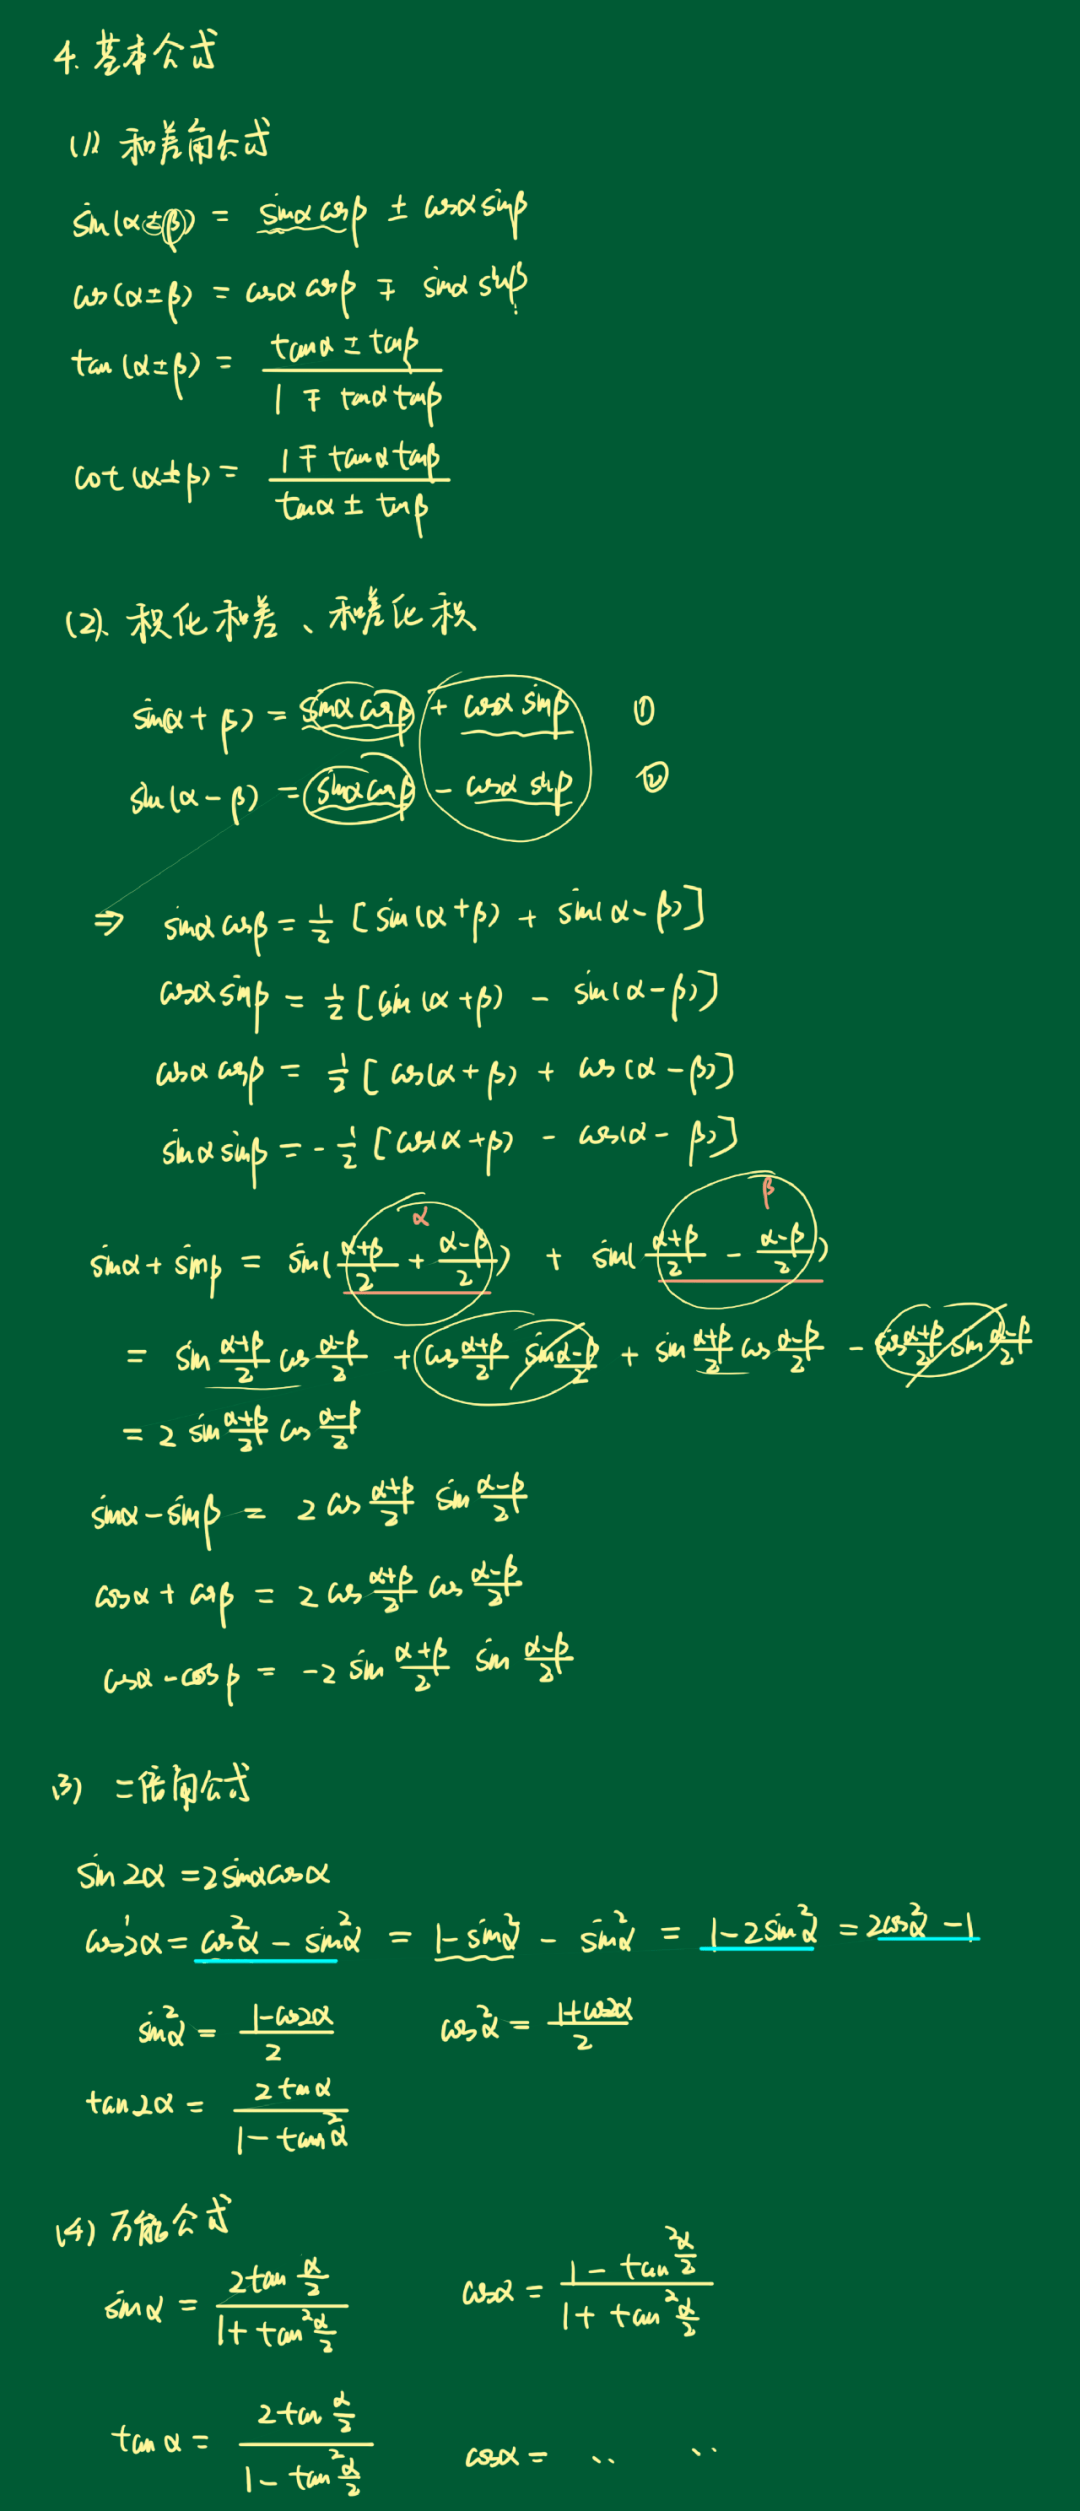 4. 基本公式
(1) 和差角公式
sin(α±β) = sinα cosβ ± cosα sinβ
cos(α±β) = cosα cosβ ∓ sinα sinβ
tan(α±β) = (tanα ± tanβ)/(1 ∓ tanα tanβ)
cot(α±β) = (1 ∓ tanα tanβ)/(tanα ± tanβ)
(2). 积化和差、和差化积
sin(α+β) = sinα cosβ + cosα sinβ ①
sin(α-β) = sinα cosβ - cosα sinβ ②
⇒ sinα cosβ = 1/2 [sin(α+β) + sin(α-β)]
cosα sinβ = 1/2 [sin(α+β) - sin(α-β)]
cosα cosβ = 1/2 [cos(α+β) + cos(α-β)]
sinα sinβ = -1/2 [cos(α+β) - cos(α-β)]
α β
sinα + sinβ = sin((α+β)/2 + (α-β)/2) + sin((α+β)/2 - (α-β)/2)
= sin (α+β)/2 cos (α-β)/2 + cos (α+β)/2 sin (α-β)/2 + sin (α+β)/2 cos (α-β)/2 - cos (α+β)/2 sin (α-β)/2
= 2 sin (α+β)/2 cos (α-β)/2
sinα - sinβ = 2 cos (α+β)/2 sin (α-β)/2
cosα + cosβ = 2 cos (α+β)/2 cos (α-β)/2
cosα - cosβ = -2 sin (α+β)/2 sin (α-β)/2
(3) 二倍角公式
sin2α = 2sinαcosα
cos2α = cos²α - sin²α = 1 - sin²α - sin²α = 1-2sin²α = 2cos²α -1
sin²α = (1-cos2α)/2 cos²α = (1+cos2α)/2
tan2α = (2tanα)/(1-tan²α)
(4) 万能公式
sinα = (2tan α/2)/(1+tan² α/2) cosα = (1-tan² α/2)/(1+tan² α/2)
tanα = (2tan α/2)/(1-tan² α/2) cosα = .. ..